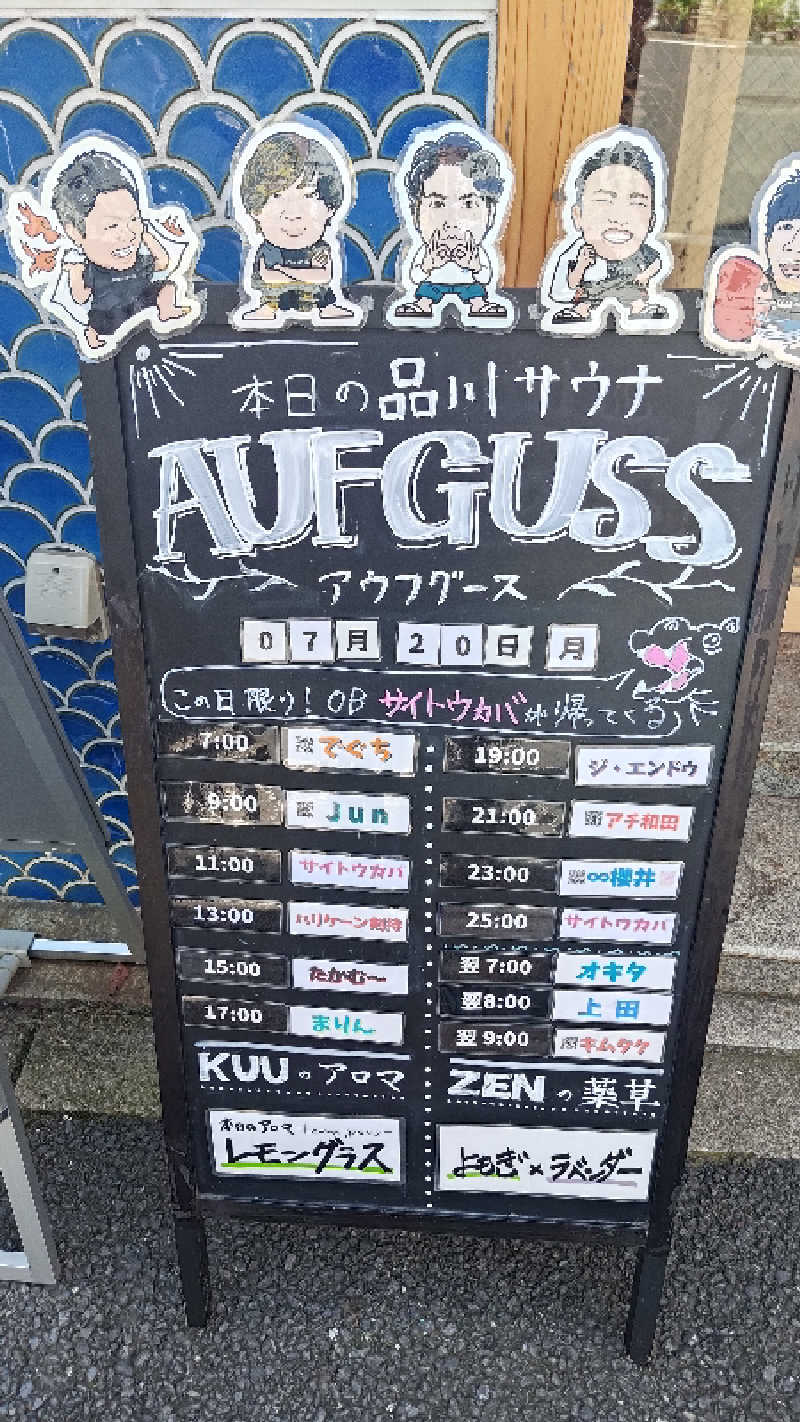 本日の品川サウナ
AUFGUSS
アウフグース
07月 20日 月
この日限り! OB サイトウカバが帰ってくる
7:00 でぐち
9:00 Jun
11:00 サイトウカバ
13:00 ハリケーン
15:00 たかむー
17:00 まりん
19:00 ジ・エンドウ
21:00 アチ和田
23:00 ∞櫻井
25:00 サイトウカバ
翌7:00 オキタ
翌8:00 上田
翌9:00 キムタケ
KUUのアロマ
本日のアロマ
レモングラス
ZENの薬草
よもぎ×ラベンダー